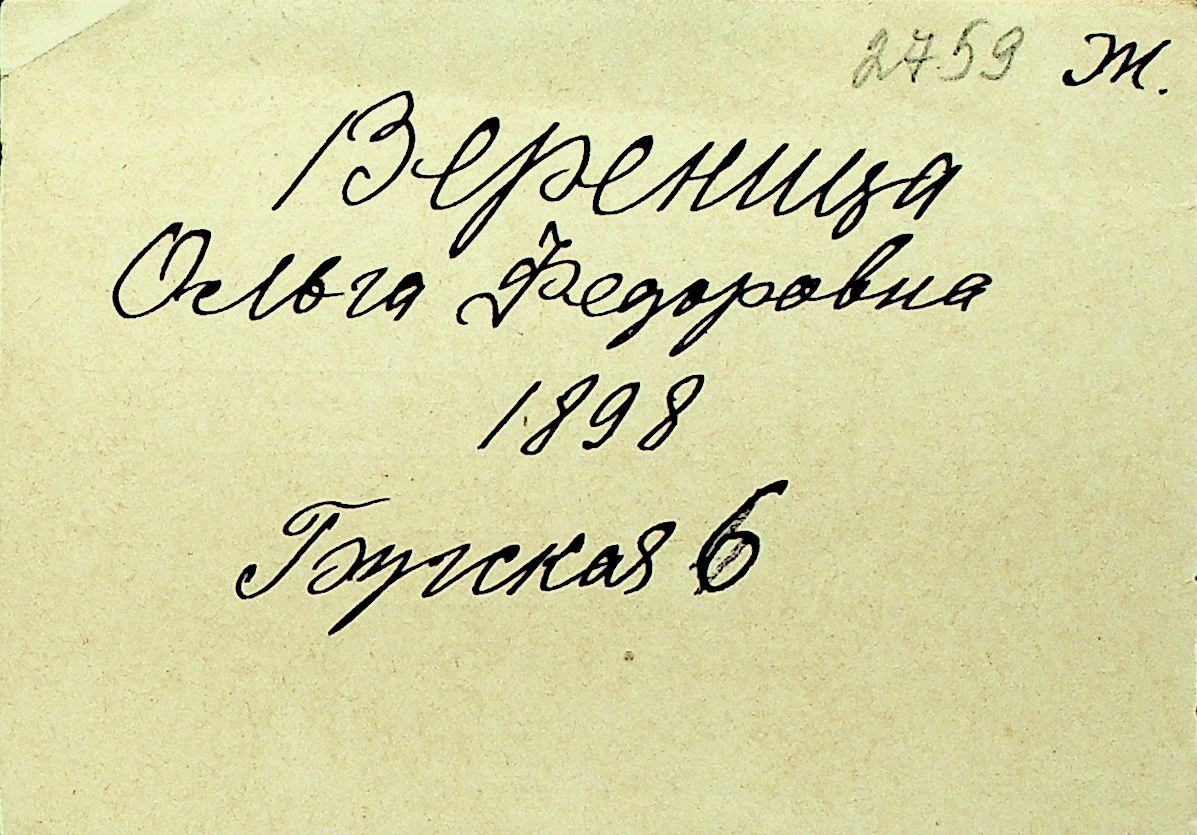 2759 Ж.
Вереница
Ольга Федоровна
1898
Бугская 6